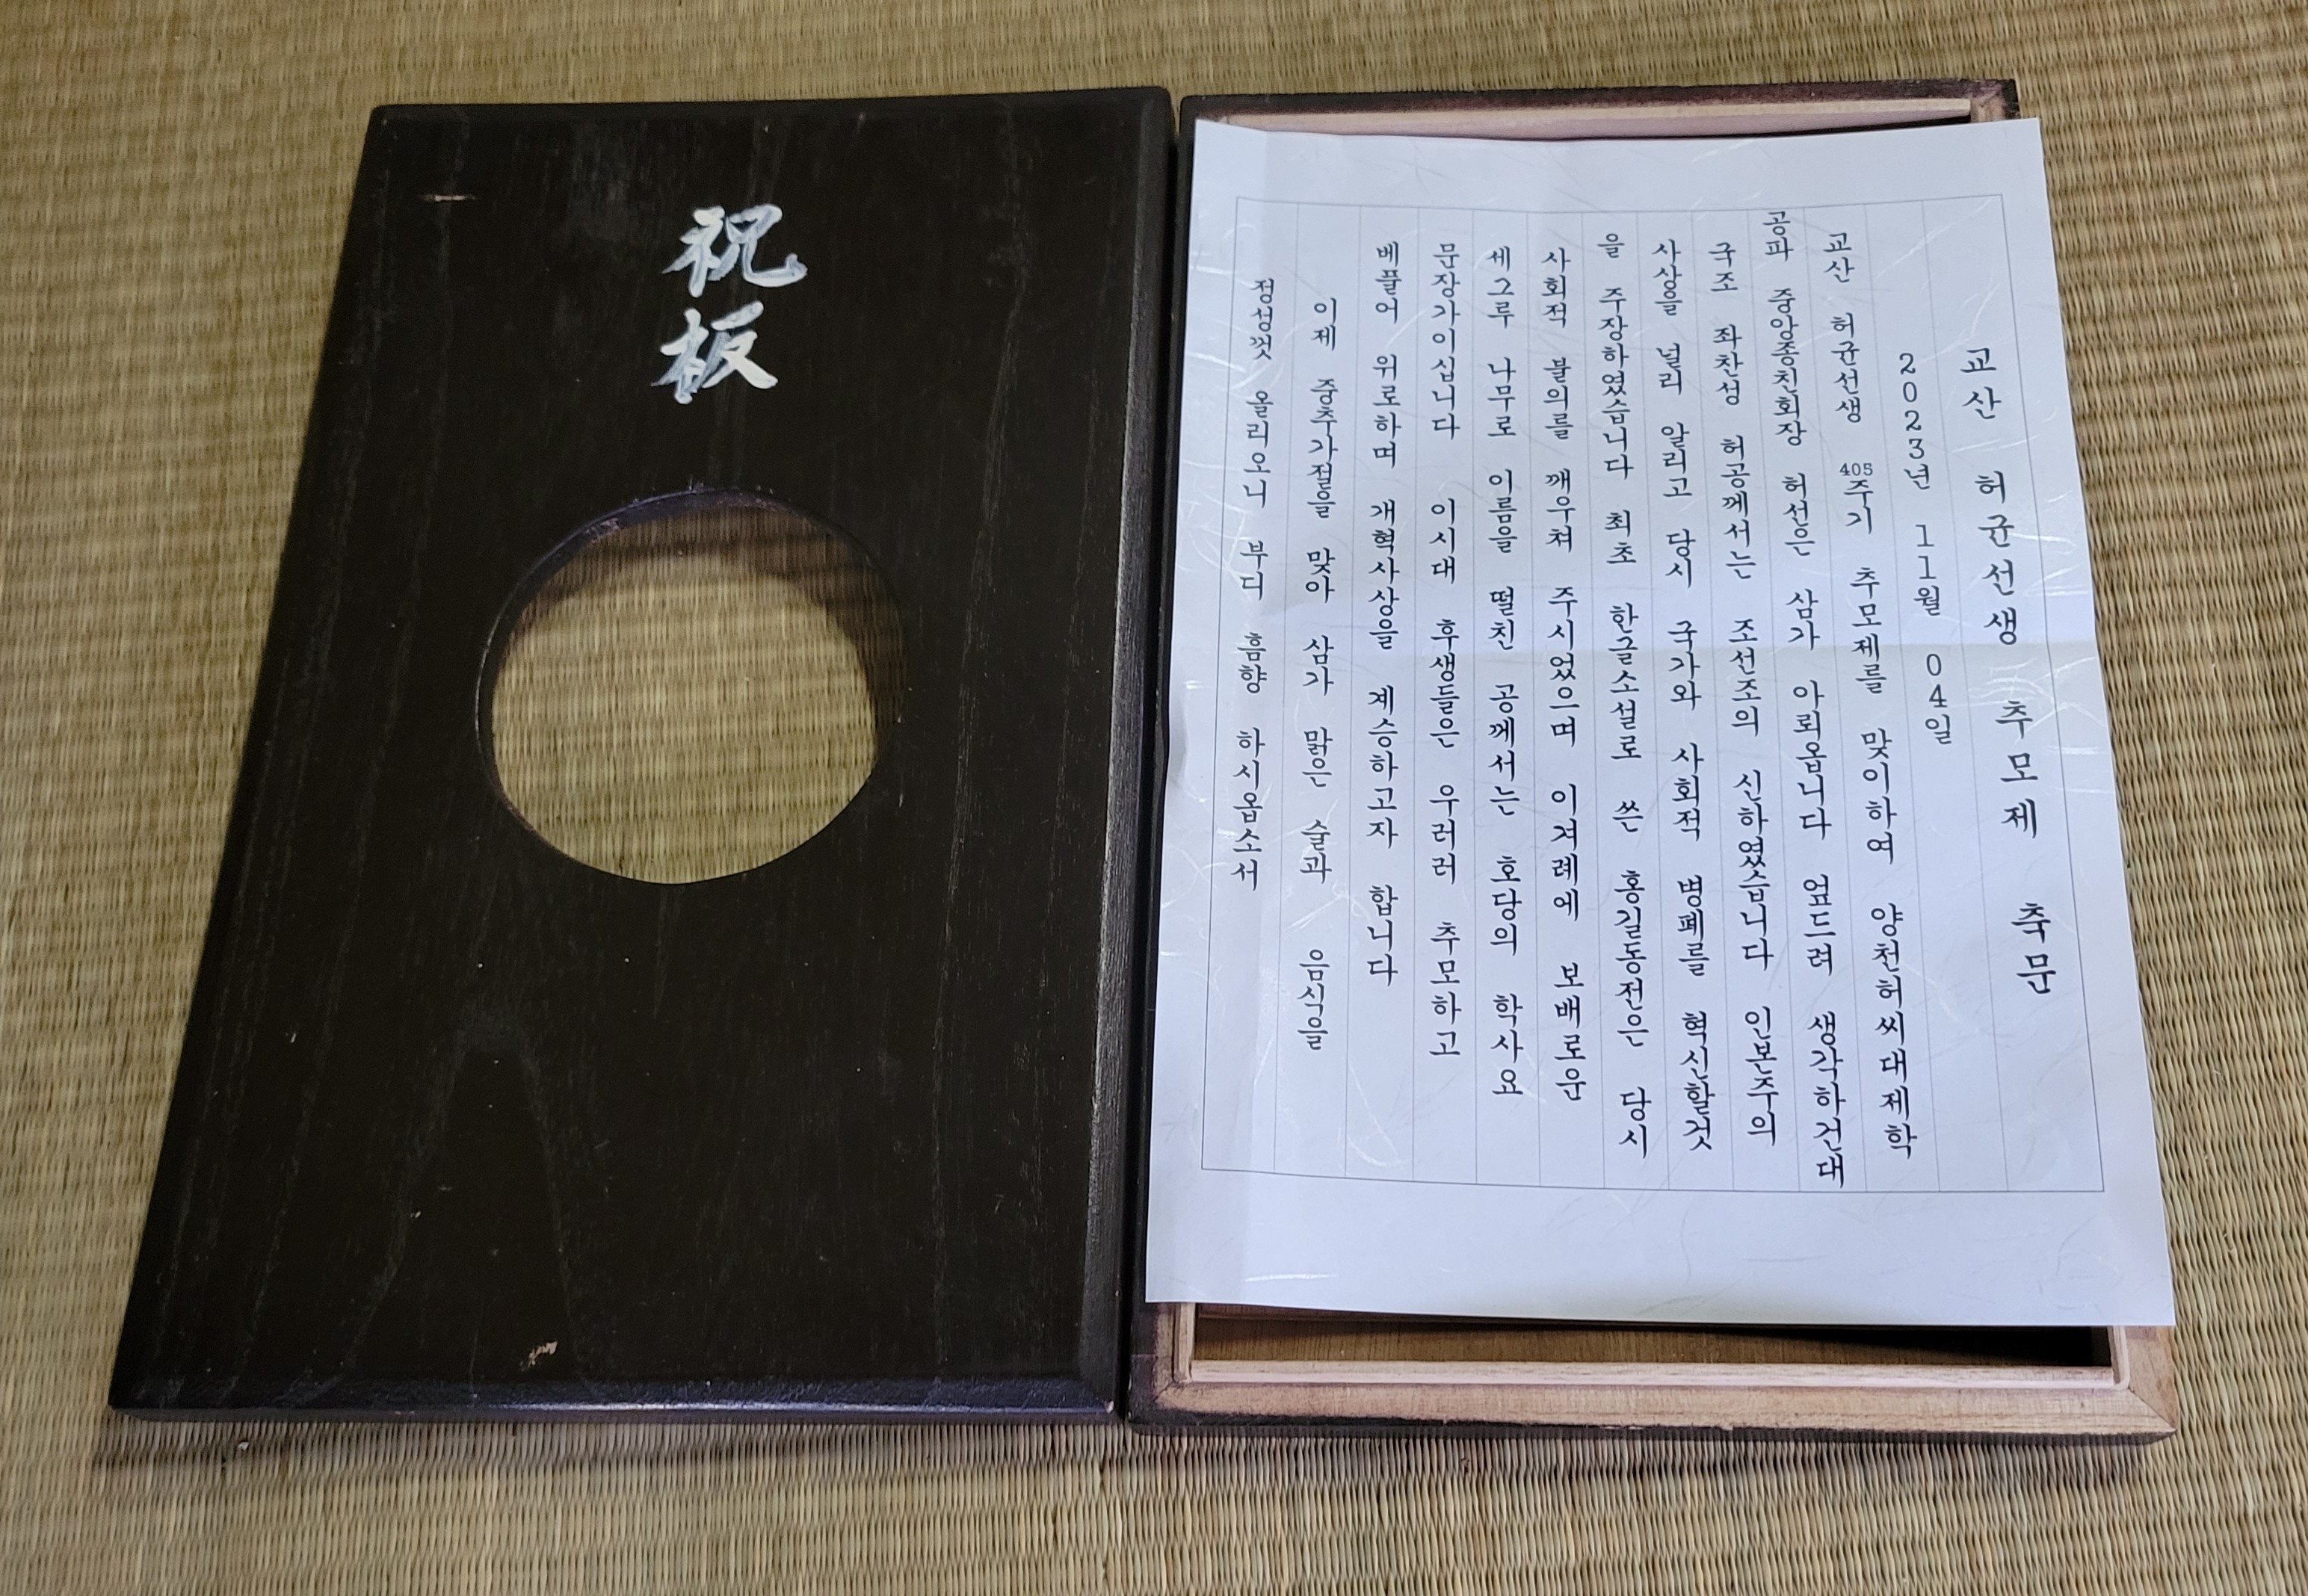 祝板
교산 허균선생 추모제 축문
2023년 11월 04일
교산 허균선생 405주기 추모제를 맞이하여 양천허씨대제학
공파 중앙종친회장 허선은 삼가 아뢰옵니다 엎드려 생각하건대
국조 좌찬성 허공께서는 조선조의 신하였습니다 인본주의
사상을 널리 알리고 당시 국가와 사회적 병폐를 혁신할것
을 주장하였습니다 최초 한글소설로 쓴 홍길동전은 당시
사회적 불의를 깨우쳐 주시었으며 이겨레에 보배로운
세그루 나무로 이름을 떨친 공께서는 호당의 학사요
문장가이십니다 이시대 후생들은 우러러 추모하고
베풀어 위로하며 개혁사상을 계승하고자 합니다
이제 중추가절을 맞아 삼가 맑은 술과 음식을
정성껏 올리오니 부디 흠향 하시옵소서